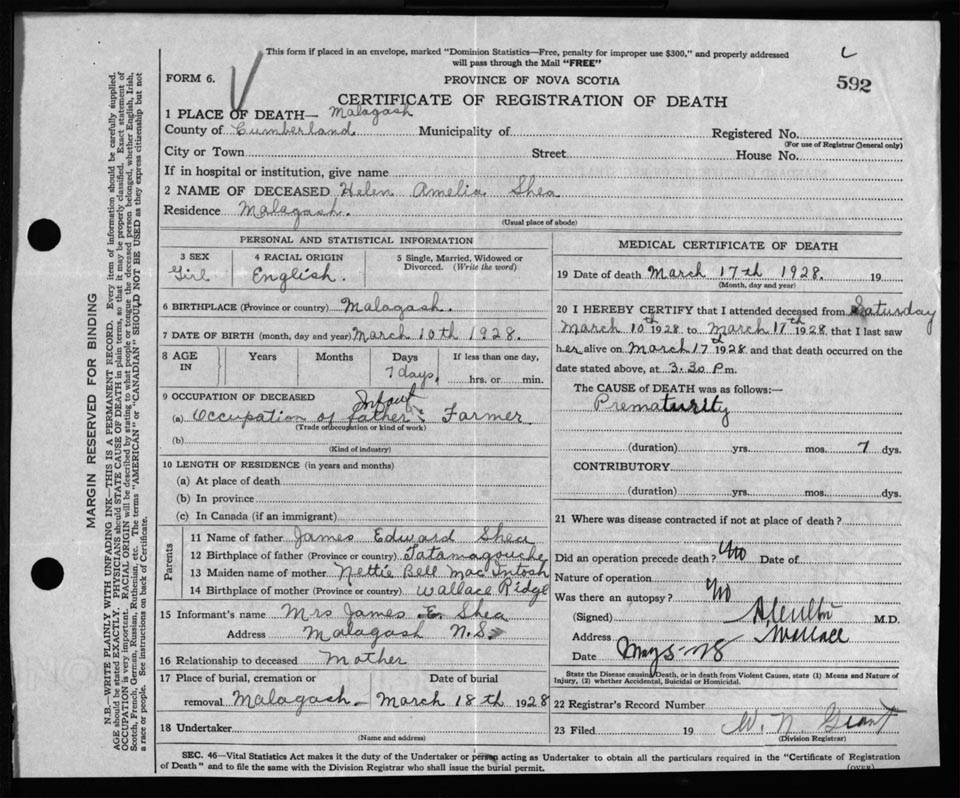 This form if placed in an envelope, marked "Dominion Statistics—Free, penalty for improper use $300," and properly addressed
will pass through the Mail "FREE"
FORM 6.
PROVINCE OF NOVA SCOTIA
592
CERTIFICATE OF REGISTRATION OF DEATH
1 PLACE OF DEATH— Malagash
County of Cumberland Municipality of Registered No.
(For use of Registrar General only)
City or Town Street House No.
If in hospital or institution, give name
2 NAME OF DECEASED Helen Amelia Shea
Residence Malagash.
(Usual place of abode)
PERSONAL AND STATISTICAL INFORMATION
3 SEX 4 RACIAL ORIGIN 5 Single, Married, Widowed or
Divorced. (Write the word)
Girl English.
6 BIRTHPLACE (Province or country) Malagash.
7 DATE OF BIRTH (month, day and year) March 10th 1928.
8 AGE IN Years Months Days If less than one day,
7 days. hrs. or min.
9 OCCUPATION OF DECEASED Infant
(a) Occupation of father: Farmer
(Trade or occupation or kind of work)
(b)
(Kind of industry)
10 LENGTH OF RESIDENCE (in years and months)
(a) At place of death
(b) In province
(c) In Canada (if an immigrant)
Parents
11 Name of father James Edward Shea
12 Birthplace of father (Province or country) Tatamagouche
13 Maiden name of mother Nettie Bell MacIntosh
14 Birthplace of mother (Province or country) Wallace Ridge
15 Informant's name Mrs James E. Shea
Address Malagash N.S.
16 Relationship to deceased Mother
17 Place of burial, cremation or Date of burial
removal Malagash— March 18th 1928
18 Undertaker
(Name and address)
MEDICAL CERTIFICATE OF DEATH
19 Date of death March 17th 1928. 19
(Month, day and year)
20 I HEREBY CERTIFY that I attended deceased from Saturday
March 10th 1928 to March 17th 1928, that I last saw
her alive on March 17th 1928 and that death occurred on the
date stated above, at 3.30 P.m.
The CAUSE OF DEATH was as follows:—
Prematurity
(duration) yrs. mos. 7 dys.
CONTRIBUTORY
(duration) yrs. mos. dys.
21 Where was disease contracted if not at place of death?
Did an operation precede death? No Date of
Nature of operation
Was there an autopsy? No
(Signed) M.D.
Address Wallace
Date May 5-28
State the Disease causing Death, or in death from Violent Causes, state (1) Means and Nature of
Injury, (2) whether Accidental, Suicidal or Homicidal.
22 Registrar's Record Number
23 Filed 19 W. N. Grant
(Division Registrar)
SEC. 46—Vital Statistics Act makes it the duty of the Undertaker or person acting as Undertaker to obtain all the particulars required in the "Certificate of Registration
of Death" and to file the same with the Division Registrar who shall issue the burial permit.
(OVER)
MARGIN RESERVED FOR BINDING
N.B.—WRITE PLAINLY WITH UNFADING INK—THIS IS A PERMANENT RECORD. Every item of information should be carefully supplied.
AGE should be stated EXACTLY. PHYSICIANS should STATE CAUSE OF DEATH in plain terms, so that it may be properly classified. Exact statement of
OCCUPATION is very important. RACIAL ORIGIN will be described by stating to what people or tongue the deceased person belonged, whether English, Irish,
Scotch, French, German, Russian, Ruthenian, etc. The terms "AMERICAN" or "CANADIAN" SHOULD NOT BE USED as they express citizenship but not
a race or people. See instructions on back of Certificate.